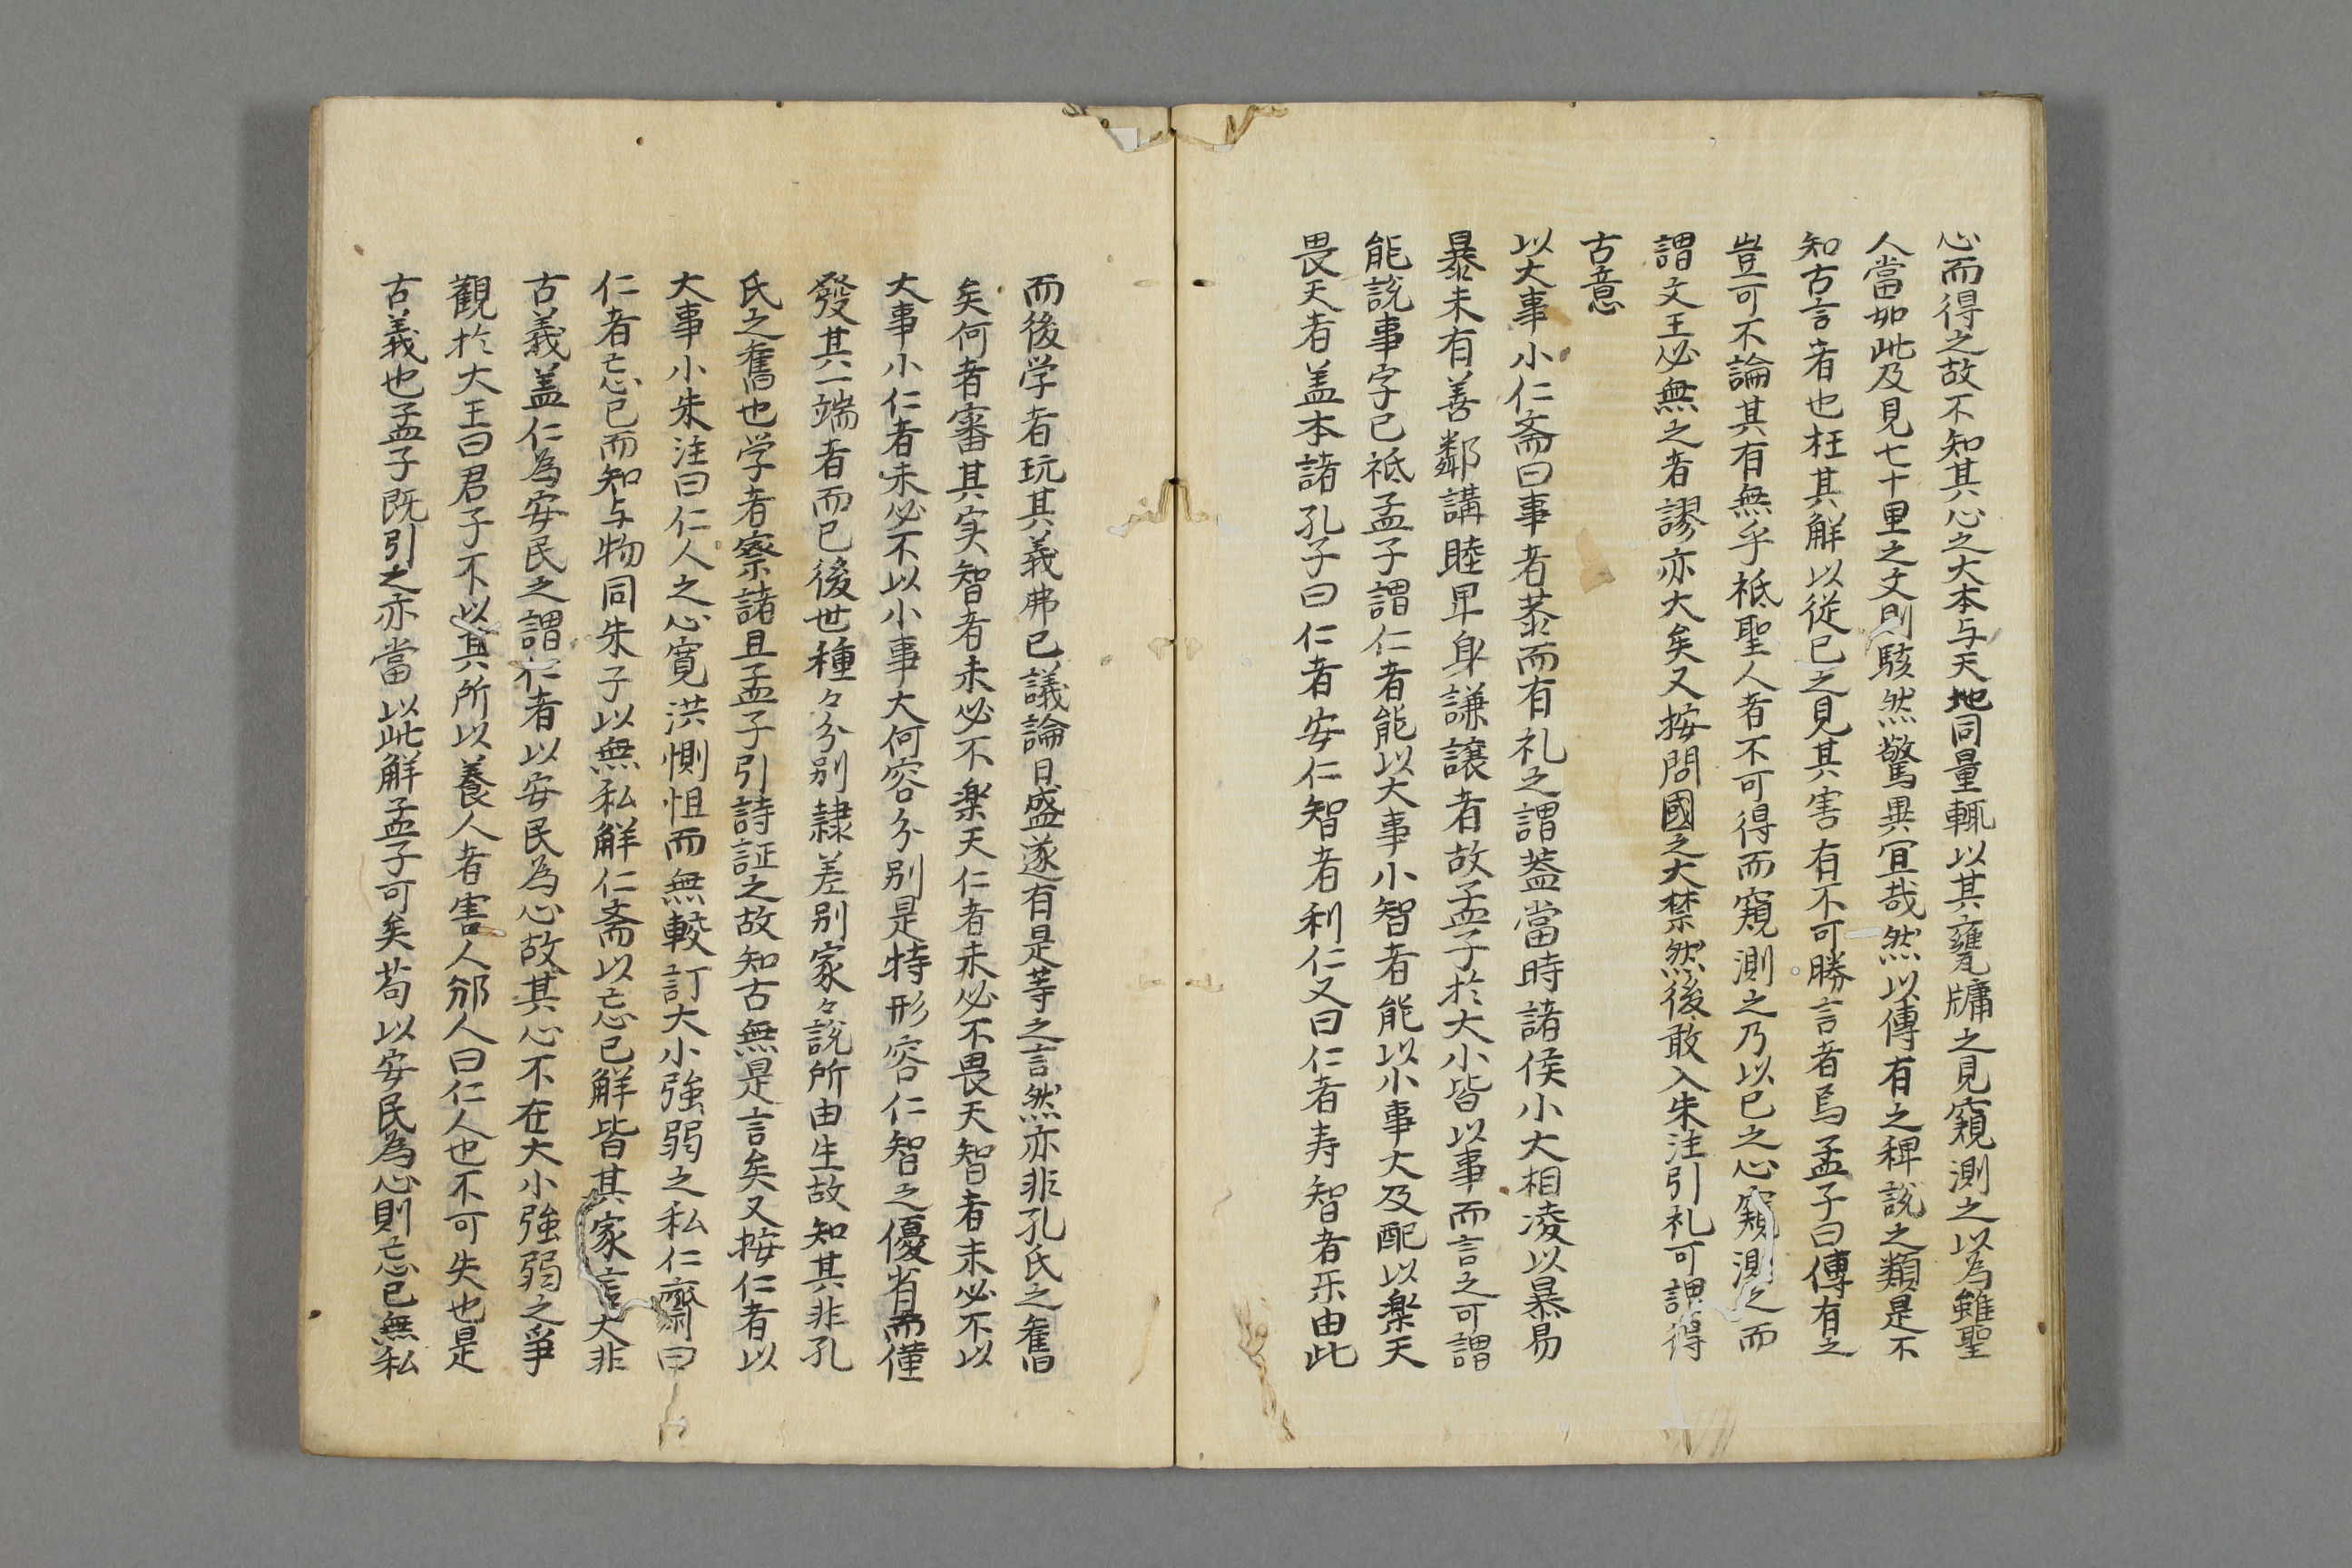 心而得之故不知其心之大本与天地同量輒以其甕牖之見窺測之以為雖聖
人當如此及見七十里之文則駭然驚異宜哉然以傳有之稗説之類是不
知古言者也枉其解以從已之見其害有不可勝言者焉孟子曰傳有之
豈可不論其有無乎祗聖人者不可得而窺測之乃以已之心窺測之而
謂文王必無之者謬亦大矣又按問國之大禁然後敢入朱注引礼可謂得
古意
以大事小仁斎曰事者恭而有礼之謂盖當時諸侯小大相凌以暴易
暴未有善鄰講睦卑身謙譲者故孟子於大小皆以事而言之可謂
能説事字已祗孟子謂仁者能以大事小智者能以小事大及配以楽天
畏天者盖本諸孔子曰仁者安仁智者利仁又曰仁者寿智者乐由此
而後学者玩其義弗已議論日盛遂有是等之言然亦非孔氏之舊
矣何者審其实智者未必不楽天仁者未必不畏天智者未必不以
大事小仁者未必不以小事大何容分別是特形容仁智之優省而僅
發其一端者而已後世種々分別隷差別家々説所由生故知其非孔
氏之舊也学者察諸且孟子引詩証之故知古無是言矣又按仁者以
大事小朱注曰仁人之心寛洪惻怛而無較訂大小強弱之私仁齋曰
仁者忘已而知与物同朱子以無私解仁斎以忘已解皆其家言大非
古義盖仁為安民之謂仁者以安民為心故其心不在大小強弱之爭
觀於大王曰君子不以其所以養人者害人邠人曰仁人也不可失也是
古義也孟子既引之亦當以此解孟子可矣苟以安民為心則忘已無私